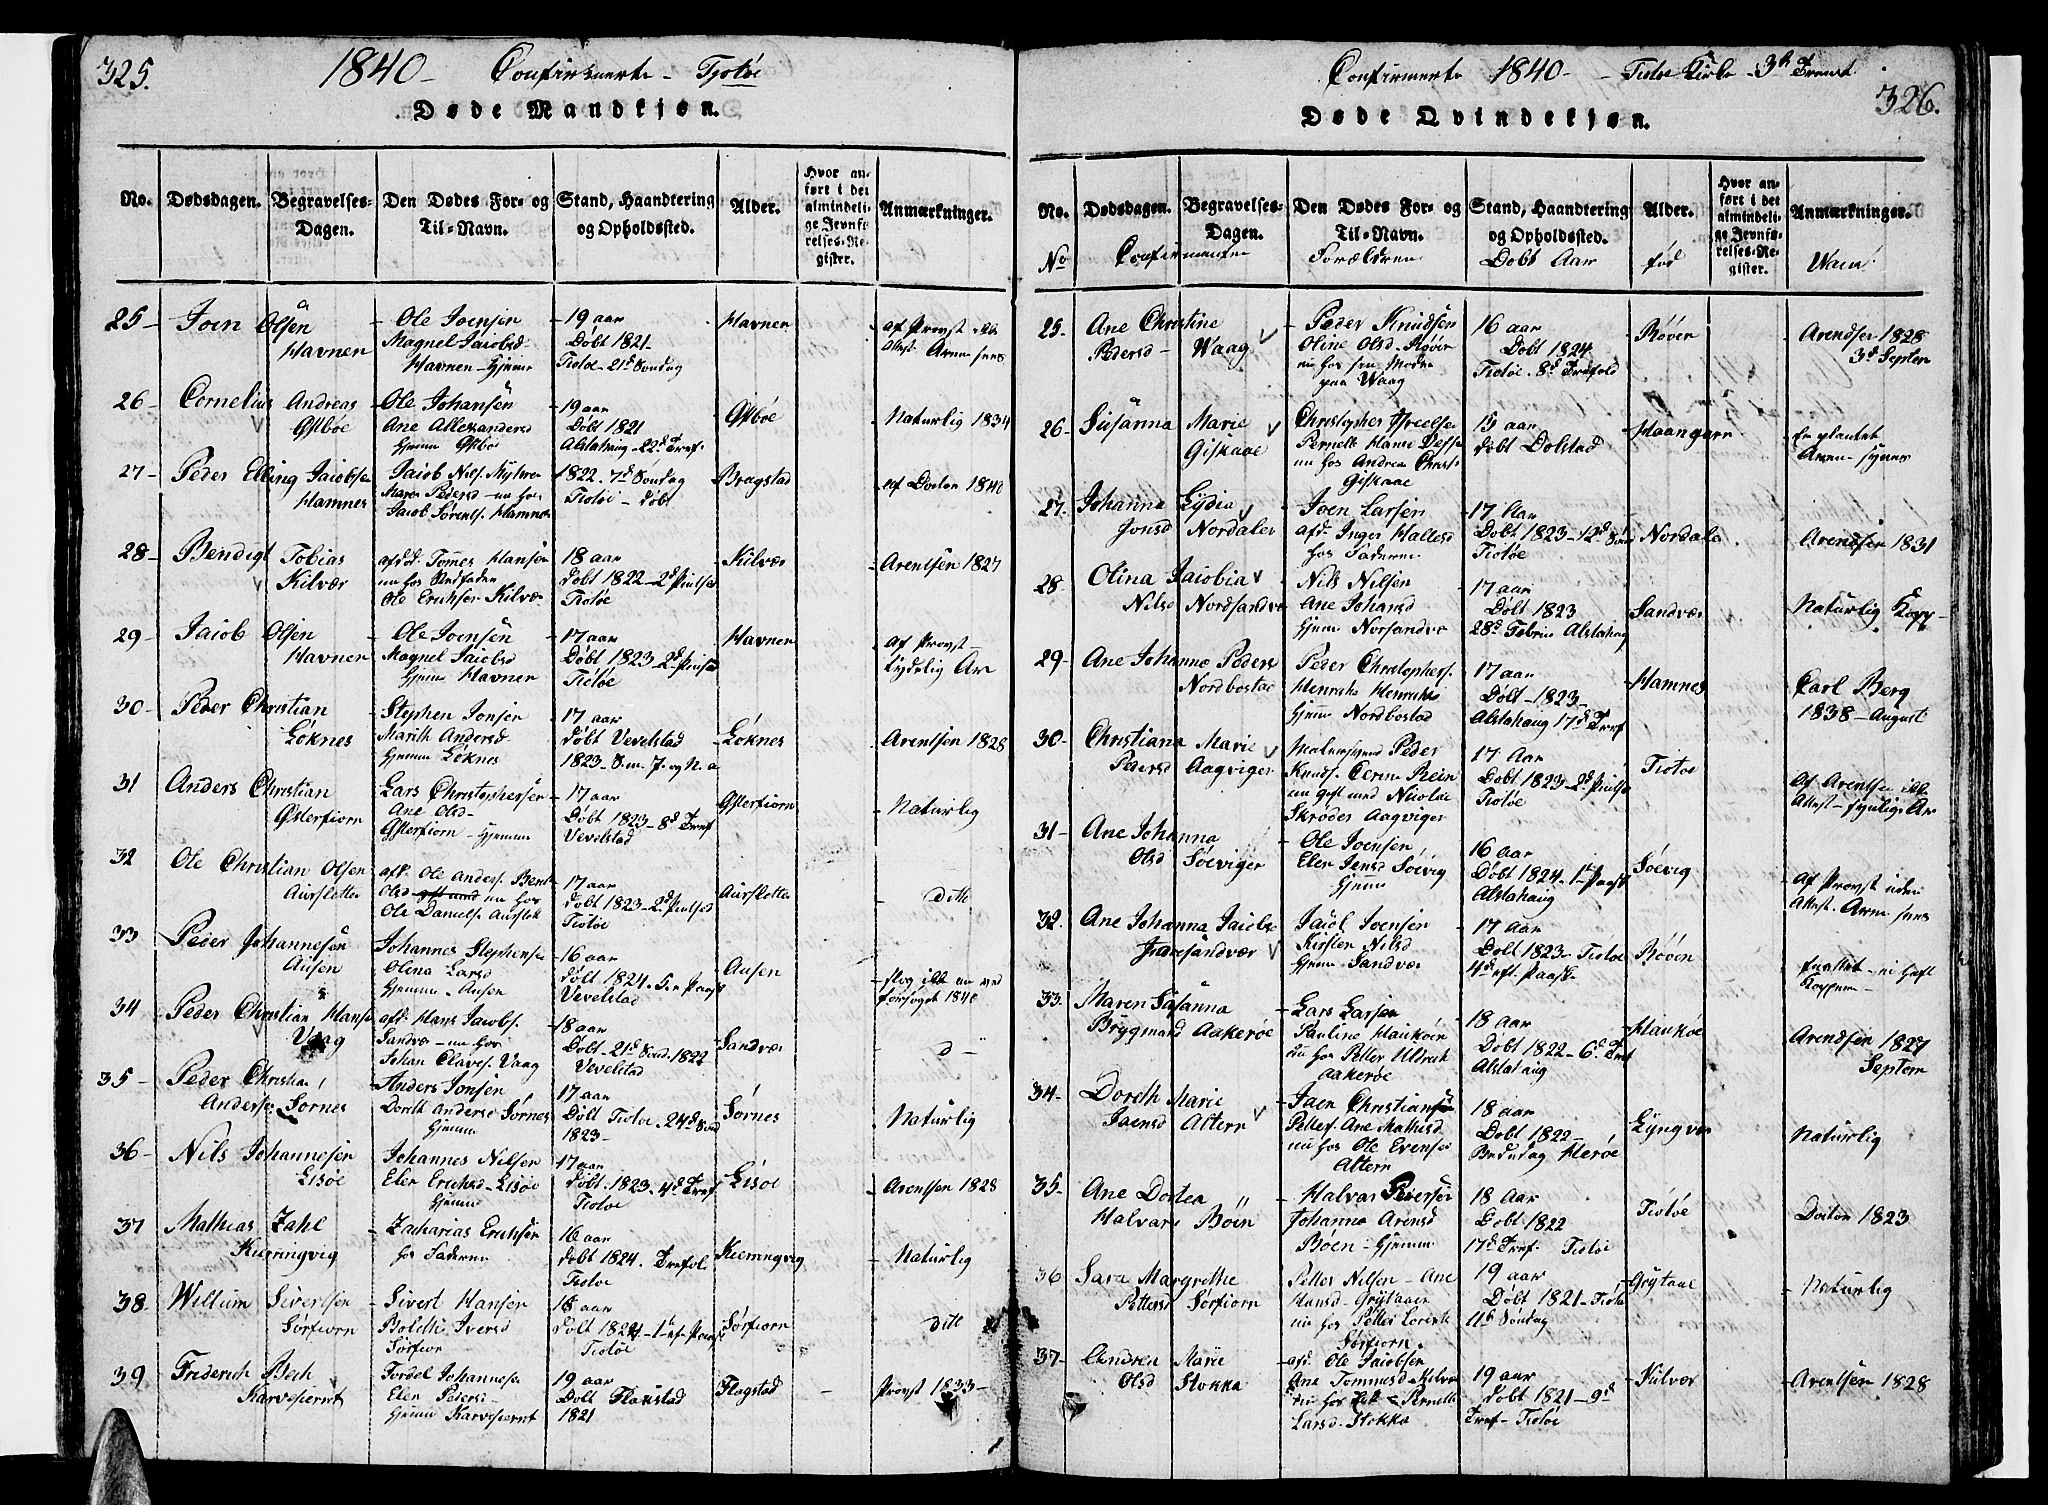 325.
1840 - Confirmerte - Tjøtøe
Døde Mandkjøn.
No. Dødsdagen. Begravelses-Dagen. Den Dødes For- og Til-Navn. Stand, Haandtering og Opholdssted. Alder. Hvor anført i det almindelige Jevnførelses-Register. Anmærkninger.
25 - Joen Olsen
Havnen
Ole Joensen
Magnel Jacobsd
Havnen - Hjemme
19 aar
Døbt 1821 -
Tiøtøe - 21d Søndag
Havnen
af Provst
26 - Cornelius Andreas
Østbøe
Ole Johansen
Ane Allexandersd
Hjemme Østbøe
19 aar
Døbt 1821
Alstahaug - 22d Tref.
Østbøe
Naturlig 1834
27 - Peder Elling Jacobsen
Hamnes
Jacob Nils.
Maren Pedersd - nu hos
Jacob Sørens. Hamnes
1822. 7d Søndag
Tiøtøe - Døbt
Bragstad
af Doctor 1840
28 - Bendigt Tobias
Kilvær
afdd. Tomes Hansen
nu hos
Ole Erichsen Kilvær
18 aar
Døbt 1822 - 2d Pintsed
Tiøtøe
Kilvær
Arentsen 1827
29 - Jacob Olsen
Havnen
Ole Joensen
Magnel Jacobsd
Hjemme Havnen
17 aar
Døbt 1823 - 2d Pintsed
Tiøtøe
Havnen
af Provst
tydelig Ar
30 - Peder Christian
Løknes
Stephen Jonsen
Marith Andersd
Hjemme Løknes
17 aar
Døbt Vevelstad
1823 -
Løknes
Arentsen 1828
31 Anders Christian
Østerfiorn
Lars Christophersen
Ane Olsd -
Østerfiorn - Hjemme
17 aar
Døbt 1823 - 8d Tref
Vevelstad
Østerfiorn
Naturlig
32 Ole Christian Olsen
Aursletten
afd. Ole Anders.
Olsd nu hos
Ole Daniels. Aurslet
17 aar
Døbt 1823 - 2d Pintsed
Tiøtøe
Aursletten
ditto
33 Peder Johannesen
Ausen
Johannes Stephensen
Olina Larsd
Hjemme - Ausen
16 aar
Døbt 1824.
Vevelstad
Ausen
slog ikke an ved
forsøget 1840
34 Peder Christian Hans.
Vaag
afd. Hans Jacobs.
Sandvær - nu hos
Johan Claves. Vaag
18 aar
Døbt - 21d Sønd. 1822
Vevelstad
Sandvær
- d -
35 - Peder Christian
Anders. Sørnes
Anders Jonsen
Dorth Andersd Sørnes
Hjemme
17 aar
Døbt Tiøtøe - 24d Sønd
1823 -
Sørnes
Naturlig
36 - Nils Johannesen
Lisøe
Johannes Nilsen
Elen Erichsd - Lisøe
Hjemme
17 aar
Døbt 1823 - 4d Tref.
Tiøtøe
Lisøe
Arentsen 1828
37 Mathias Zahl
Kieringvig
Zacharias Erichsen
hos Faderen
16 aar
Døbt 1824 - Trefol.
Tiøtøe
Kieringvig
Naturlig
38. Willum Sivertsen
Sørfiorn
Sivert Hansen
Boleth Iversd
Sørfiorn
16 aar
Døbt 1824
Tiøtøe
Sørfiorn
dito
39 Friderich Bech
Karvesiernt
Tordel Johannesen
Elen Peders.
Hjemme Karvesiernt
19 aar
Døbt Flakstad
1821
Flagstad
Provst 1833 -
Confirmerte 1840 - Tiøtøe Kirke -
326.
Døde Qvindekjøn.
No. Dødsdagen. Begravelses-Dagen. Den Dødes For- og Til-Navn. Stand, Haandtering og Opholdssted. Alder. Hvor anført i det almindelige Jevnførelses-Register. Anmærkninger.
No Confirmanten Forældrene Døbt Aar fød Vacci
25. Ane Christine
Pedersd - Waag
Peder Knudsen
Oline Olsd - Røven
nu hos sin Moder
paa Waag
16 aar
Døbt 1824
Tiøtøe - 8d Trefold
Røven
Arendsen 1828
3d Septem
26 - Susanna Marie
Giskaae
Christopher
nu hos Andrea
Giskaae
15 aar
Døbt Dolstad
27 - Johanna Lydia
Jonsd Nordalen
Joen Larsen
afd. Inger Hallesd
hos Faderen
17 Aar
Døbt 1823 - 12d Sønd
Tiøtøe
Nordalen
Arendsen 1831
28 Olina Jacobia
Nilsd Nordsandvær
Nils Nilsen
Ane Johansd
Hjemme Norsandvær
17 aar
Døbt 1823
28d Febru Alstahaug
Sandvær
Naturlig Kopp -
29 - Ane Johanna Peders
Nordbostad
Peder Christophers.
Henricha Henrichs
Hjemme Nordbostad
17 aar
Døbt - 1823 -
Alstahaug 17d Tref
Hamnes
Carl Berg
1838 - August
30 - Christiana Marie
Pedersd Aagviger
Peder
Knuds. Rein
nu gift med Nicolai
Skrøder Aagviger
17 Aar
Døbt 1823 - 2d Pintsed
Tiøtøe
Tiøtøe
af Arentsen ikke
Attest - synlige Ar
31 - Ane Johanna
Olsd Søeviger
Ole Joensen
Elen Jensd Søevig
Hjemme
16 aar
Døbt 1824 -
Alstahaug
Søevig
af Provst uden
Attest. Arene sees
32. Ane Johanna Jacobs
Jacob Joensen
Kirsten Nilsd
Hjemme Sandvær
17 aar
Døbt 1823 - Tiøtøe
4d eft. Paaske
Røven
33. Maren Susanna
Brygmand Aakerøe
Lars Larsen
Pauline Haukøen
nu hos Petter Uldrich
Aakerøe
18 aar
Døbt 1822 - 6d Tref
Alstahaug
Haukøe
Arendsen 1827
Septem
34 - Dorth Marie
Jaensd Altern
Jaen Christiansen
Petter. Ane Mathisd
nu hos Ole Evensen
Altern
18 aar
Døbt 1822 -
Bededag Herøe
Lyngvær
Naturlig
35 - Ane Dortea
Halvars Bøen
Halvar Pedersen
Johanna Arensd
Bøen - Hjemme
18 Aar
Døbt 1822
17d Tref. Tiøtøe
Tiøtøe
Doctor 1823
36 Sara Margrethe
Pettersd Sørfiorn
Petter Nilsen - Ane
Hansd - Grytaaen
nu hos Petter Lorents
Sørfiorn
19 aar
Døbt 1821 - Tiøtøe
11d Søndag
Grytaae
Naturlig
37 - Andrea Marie
Olsd Stokka
afd. Ole Jacobsen
Ane Tommesd Kilvær
nu hos Pernelle
Larsd - Stokka
19 aar
Døbt 1821 - 9d
Tref - Tiøtøe
Kilvær
Arentsen 1828